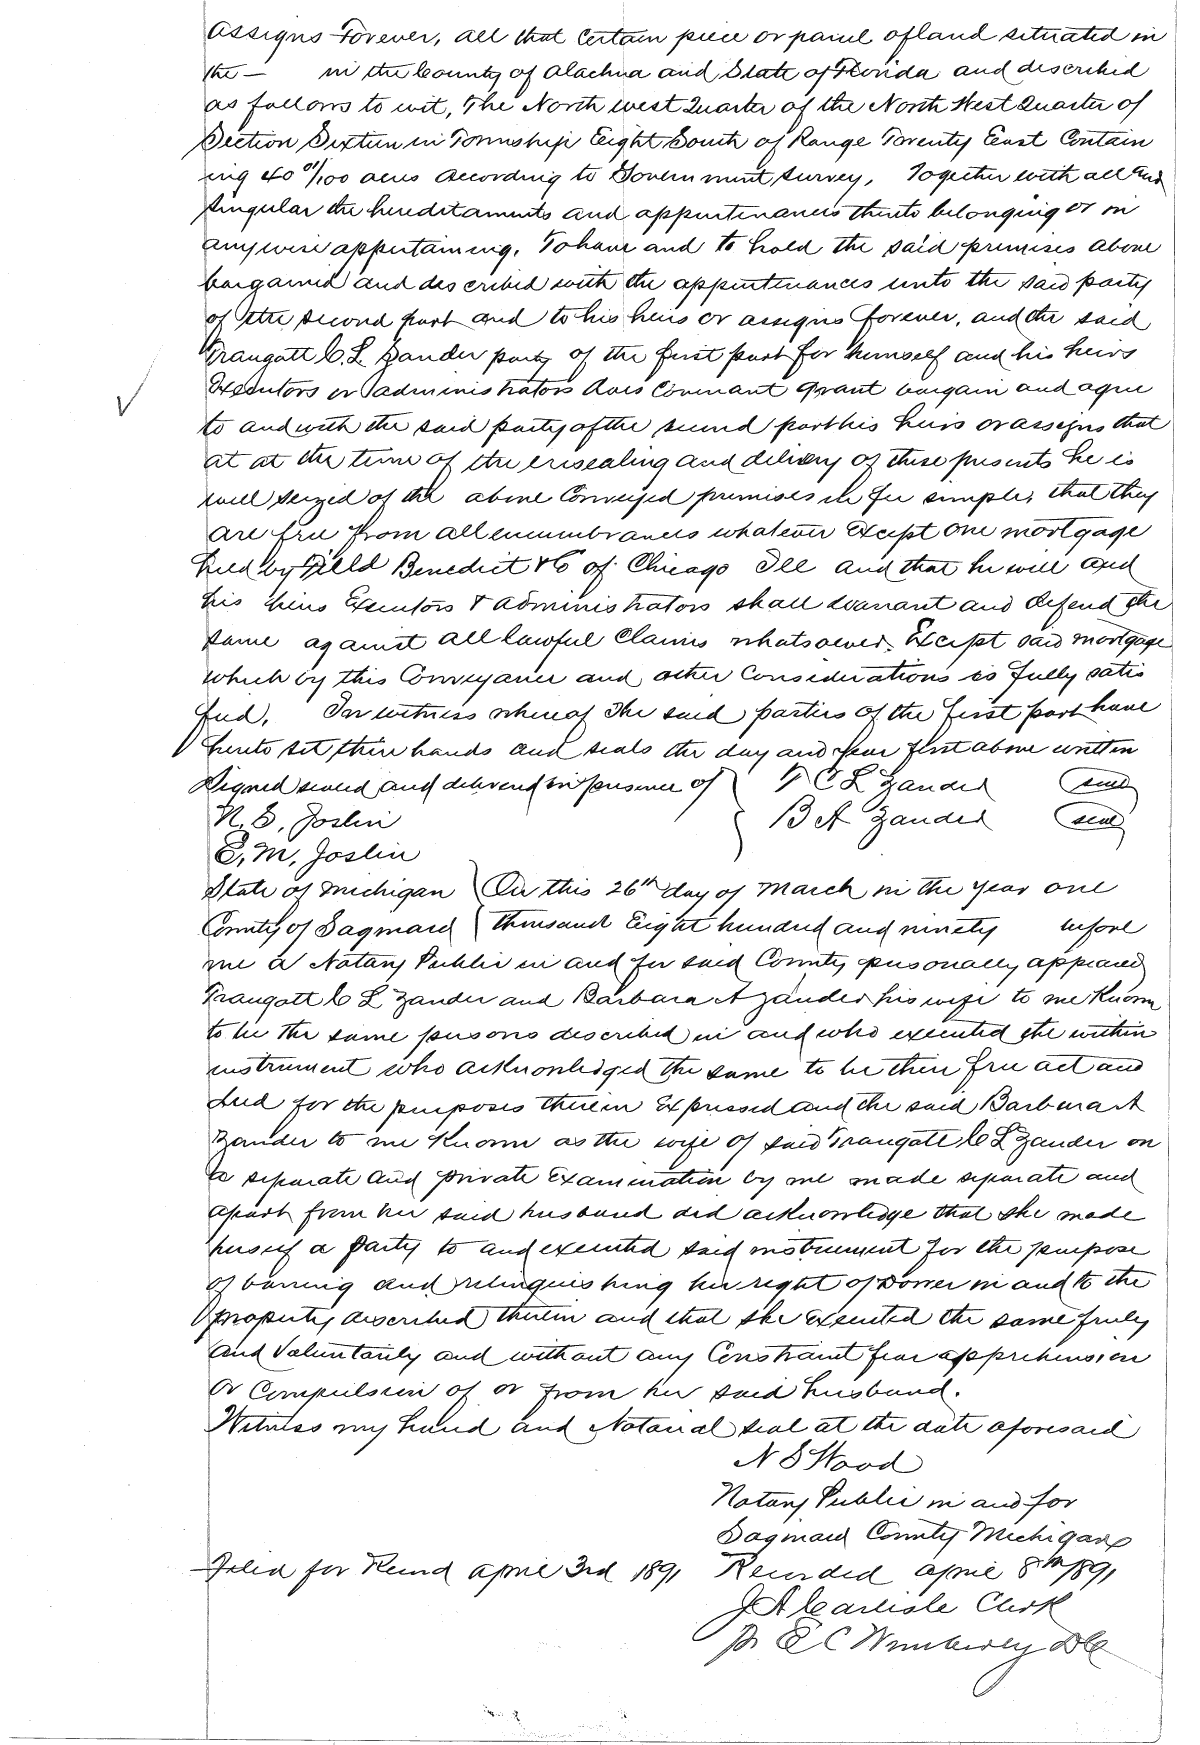 assigns Forever, all that certain piece or parcel of land situated in
the — in the County of Alachua and State of Florida and described
as follows to wit, The North west Quarter of the North West Quarter of
Section Sixteen in Township Eight South of Range Twenty East Contain
ing 40 01/100 acres according to Government survey, Together with all and
singular the hereditaments and appurtenances thereto belonging or in
anywise appertaining. To have and to hold the said premises above
bargained and described with the appurtenances unto the said party
of the second part and to his heirs or assigns forever, and the said
Traugott C. L Zander party of the first part for himself and his heirs
Executors or administrators does Covenant grant bargain and agree
to and with the said party of the second part his heirs or assigns that
at at the time of the ensealing and delivery of these presents he is
well seized of the above Conveyed premises in fee simple, that they
are free from all encumbrances whatever Except one mortgage
held by Field Benedict & Co of Chicago Ill and that he will and
his heirs Executors & administrators shall warrant and defend the
same against all lawful claims whatsoever. Except said mortgage
which by this Conveyance and other Considerations is fully satis
fied, In witness whereof The said parties of the first part have
hereto set their hands and seals the day and year first above written
Signed sealed and delivered in presence of } T C L Zander (seal)
N. S. Joslin } B A Zander (seal)
E. M. Joslin
State of Michigan } On this 26th day of March in the year one
County of Saginaw } thousand Eight hundred and ninety before
me a Notary Public in and for said County personally appeared
Traugott C L Zander and Barbara A Zander his wife to me Known
to be the same persons described in and who executed the within
instrument who acknowledged the same to be their free act and
deed for the purposes therein Expressed and the said Barbara A
Zander to me Known as the wife of said Traugott C L Zander on
a separate and private Examination by me made separate and
apart from her said husband did acknowledge that she made
herself a party to and executed said instrument for the purpose
of barring and relinquishing her right of Dower in and to the
property described therein and that she Executed the same freely
and Voluntarily and without any Constraint fear apprehension
or Compulsion of or from her said husband.
Witness my hand and Notarial seal at the date aforesaid
N S Wood
Notary Public in and for
Saginaw County Michigan
Filed for Record april 3rd 1891 Recorded april 8th 1891
J A Carlisle Clerk
pr E C Wimberley DC